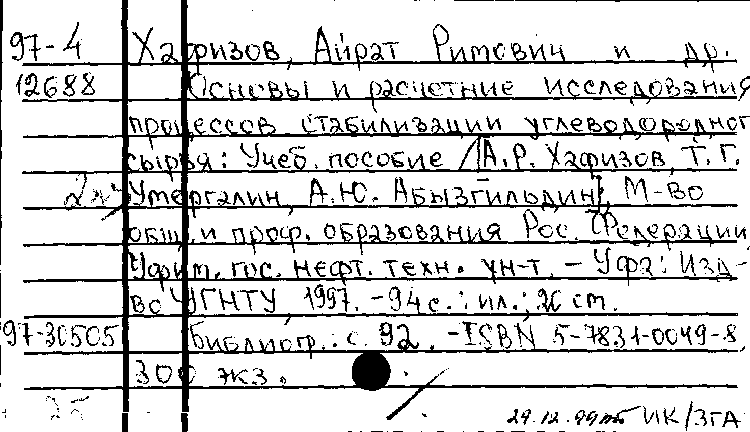 97-4 Хафизов, Айрат Римович и др.
12688 Основы и расчетные исследования
процессов стабилизации углеводородног
сырья: Учеб. пособие / [А.Р. Хафизов, Т.Г.
Умергалин, А.Ю. Абызгильдин], М-во
общ. и проф. образования Рос. Федерации,
Уфим. гос. нефт. техн. ун-т. - Уфа: Изд-
во УГНТУ, 1997. - 94 с.: ил.; 20 см.
97-30505 Библиогр.: с. 92. - ISBN 5-7831-0049-8,
300 экз.
25
29.12.99 ИК/ЗГА